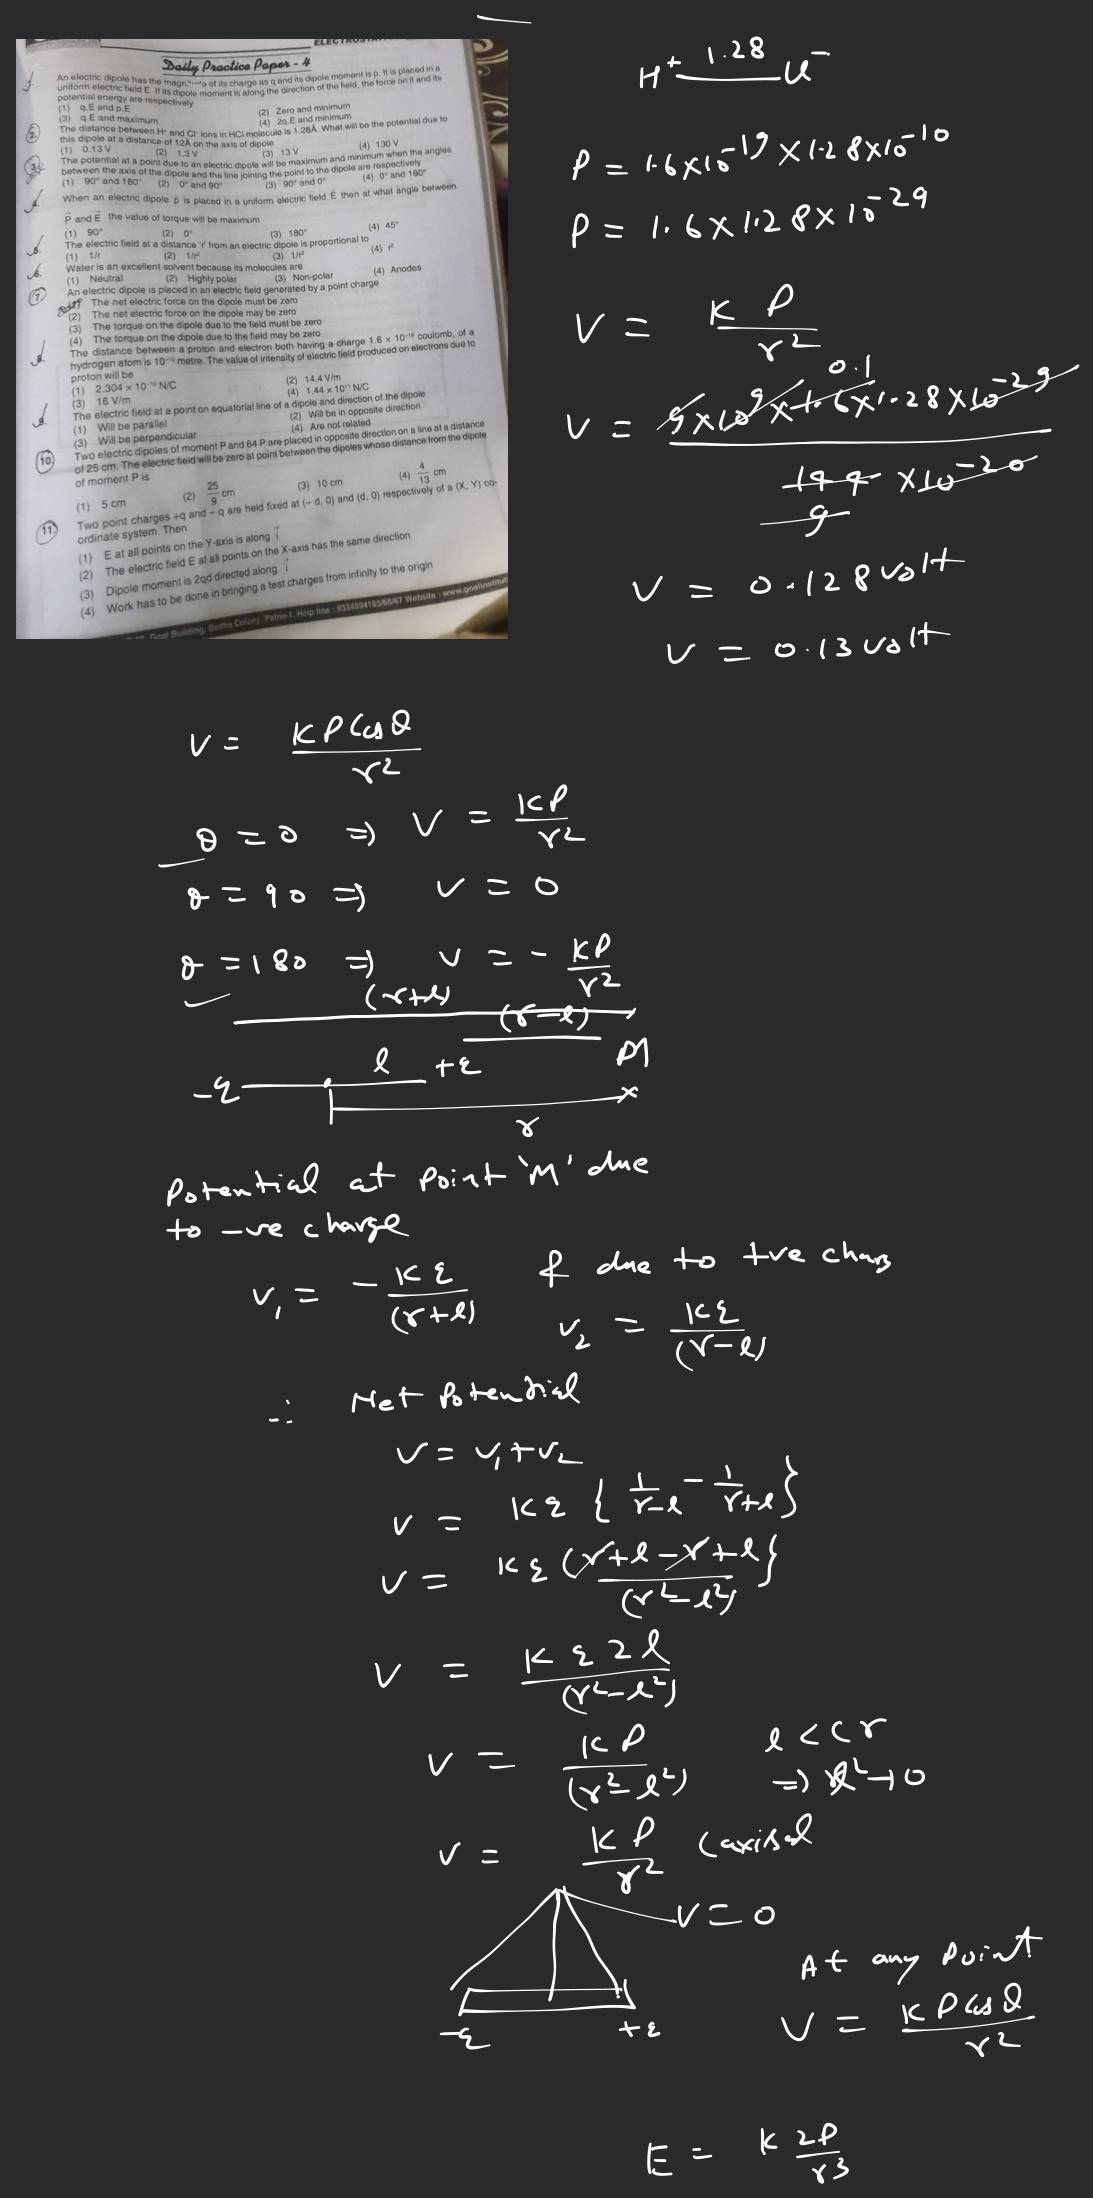 Daily Practice Paper - 4
An electric dipole has the magnitude of its charge as q and its dipole moment is p. It is placed in a
uniform electric field E. If its dipole moment is along the direction of the field, the force on it and its
potential energy are respectively
(1) q.E and p.E (2) Zero and minimum
(3) q.E and maximum (4) 2q.E and minimum
2. The distance between H+ and Cl- ions in HCl molecule is 1.28Å. What will be the potential due to
this dipole at a distance of 12Å on the axis of dipole
(1) 0.13 V (2) 1.3 V (3) 13 V (4) 130 V
3. The potential at a point due to an electric dipole will be maximum and minimum when the angles
between the axis of the dipole and the line joining the point to the dipole are respectively
(1) 90° and 180° (2) 0° and 90° (3) 90° and 0° (4) 0° and 180°
When an electric dipole p is placed in a uniform electric field E then at what angle between
P and E the value of torque will be maximum
(1) 90° (2) 0° (3) 180° (4) 45°
5. The electric field at a distance 'r' from an electric dipole is proportional to
(1) 1/r (2) 1/r² (3) 1/r³ (4) r²
6. Water is an excellent solvent because its molecules are
(1) Neutral (2) Highly polar (3) Non-polar (4) Anodes
7. An electric dipole is placed in an electric field generated by a point charge
The net electric force on the dipole must be zero
(2) The net electric force on the dipole may be zero
(3) The torque on the dipole due to the field must be zero
(4) The torque on the dipole due to the field may be zero
8. The distance between a proton and electron both having a charge 1.6 × 10⁻¹⁹ coulomb, of a
hydrogen atom is 10⁻¹⁰ metre. The value of intensity of electric field produced on electrons due to
proton will be
(1) 2.304 × 10⁻¹⁰ N/C (2) 14.4 V/m
(3) 16 V/m (4) 1.44 × 10¹¹ N/C
9. The electric field at a point on equatorial line of a dipole and direction of the dipole
(1) Will be parallel (2) Will be in opposite direction
(3) Will be perpendicular (4) Are not related
10. Two electric dipoles of moment P and 64 P are placed in opposite direction on a line at a distance
of 25 cm. The electric field will be zero at point between the dipoles whose distance from the dipole
of moment P is
(1) 5 cm (2) 25/9 cm (3) 10 cm (4) 4/13 cm
11. Two point charges +q and - q are held fixed at (- d, 0) and (d, 0) respectively of a (X, Y) co-
ordinate system. Then
(1) E at all points on the Y-axis is along i
(2) The electric field E at all points on the X-axis has the same direction
(3) Dipole moment is 2qd directed along i
(4) Work has to be done in bringing a test charges from infinity to the origin
Goal Building, Budha Colony, Patna-1, Help line : 9334594165/66/67 Website : www.goalinstitut
H+ 1.28 Cl-
P = 1.6×10⁻¹⁹ × 1.28×10⁻¹⁰
P = 1.6 × 1.28 × 10⁻²⁹
V = K P / r²
0.1
V = 9×10⁹ × 1.6 × 1.28 × 10⁻²⁹ / 144 × 10⁻²⁰
9
V = 0.128 volt
V = 0.13 volt
V = KP Cos θ / r²
θ = 0 ⇒ V = KP / r²
θ = 90 ⇒ V = 0
θ = 180 ⇒ V = - KP / r²
(r+l)
(r-l)
-q l +q M
r
Potential at point 'M' due
to -ve charge
V₁ = - Kq / (r+l) & due to +ve charg
V₂ = Kq / (r-l)
∴ Net Potential
V = V₁+V₂
V = Kq { 1/r-l - 1/r+l }
V = Kq {r+l-r+l} / (r²-l²)
V = K q 2l / (r²-l²)
V = KP / (r²-l²) l << r
⇒ l²→0
V = KP / r² (axial
V = 0
-q +q
At any point
V = KP cos θ / r²
E = K 2P / r3